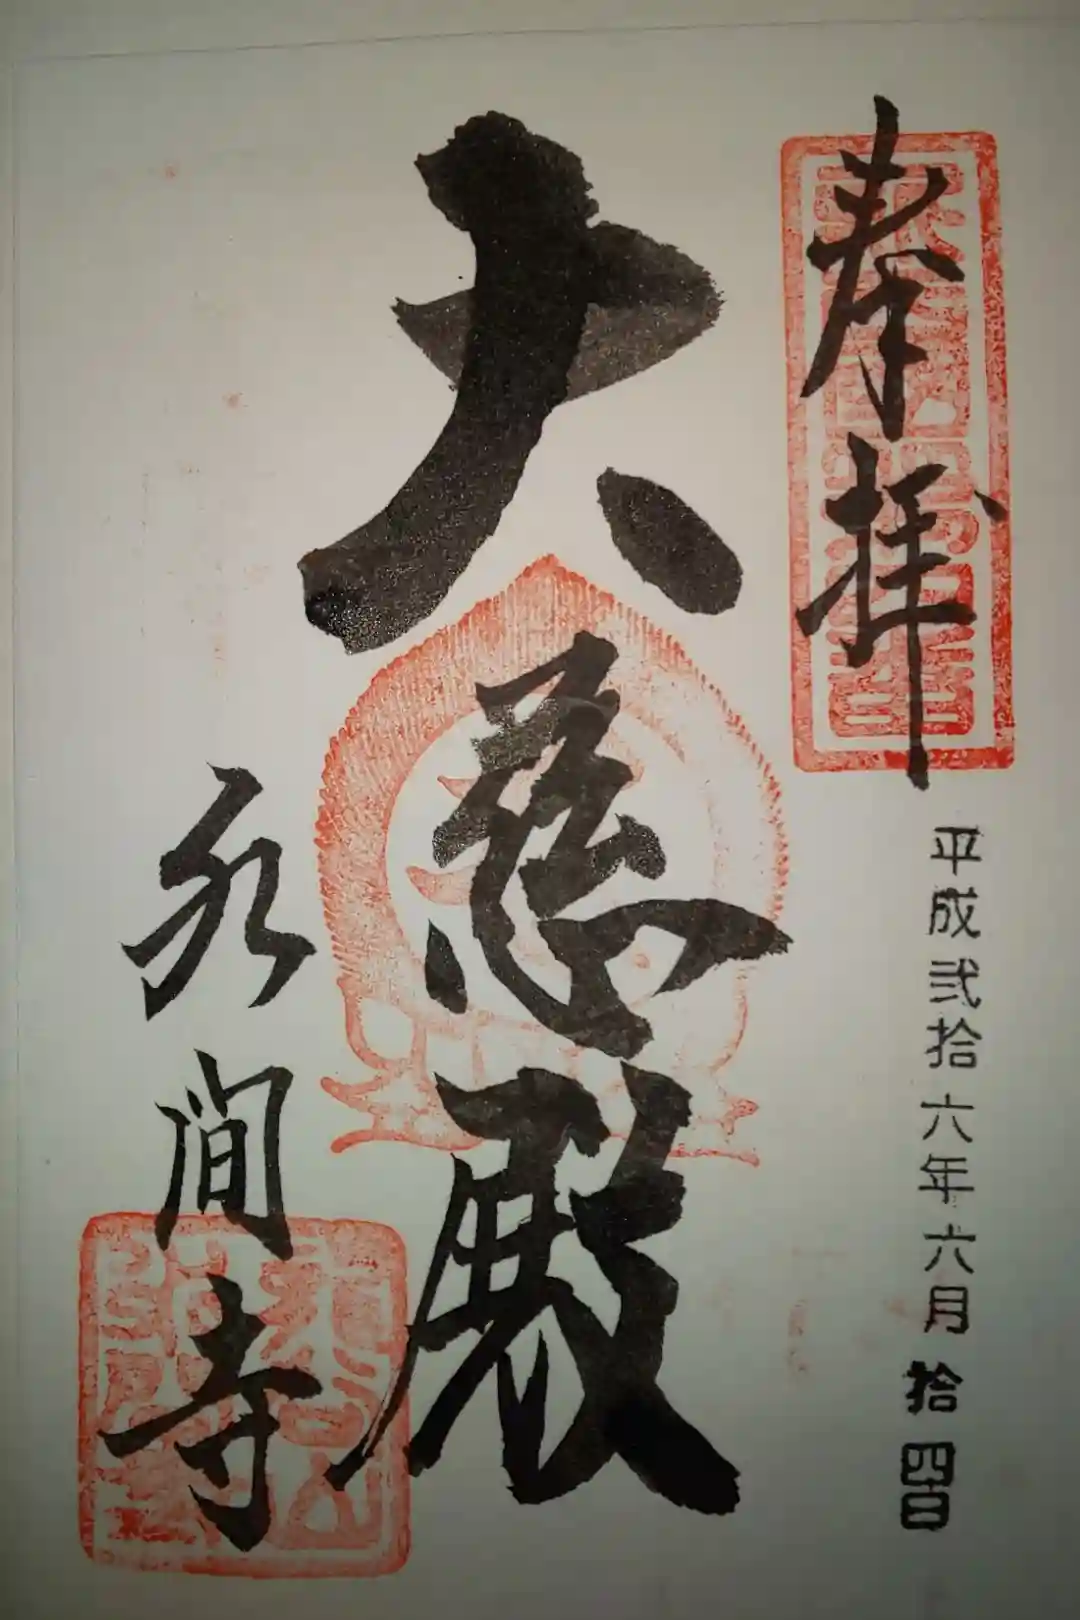 奉拝
平成弐拾六年六月拾四日
大慈殿
永間寺